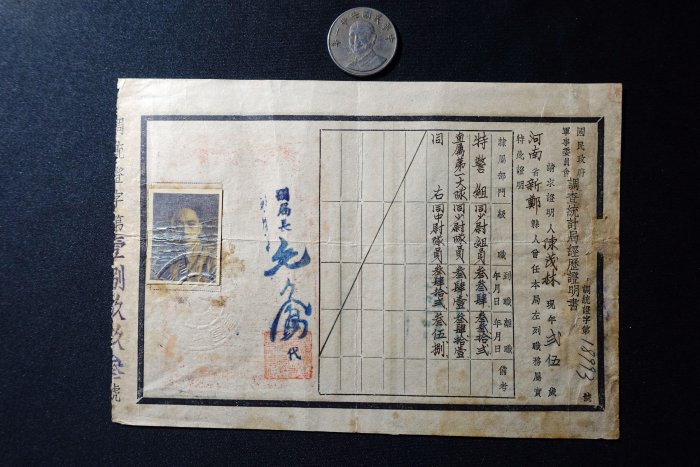 中華民國九十一年
國民政府
軍事委員會
調查統計局經歷證明書
調統證字第18993號
請求證明人陳茂林現年弍伍歲
河南省新鄭縣人曾任本局左列職務屬實
特此證明
隸屬部門 級職 到職年月日 離職年月日 備考
特警組 同少尉組員 叁叁肆 叁叁拾弍
直屬第一大隊 同少尉隊員 叁肆壹 叁肆拾壹
同右 同中尉隊員 叁肆拾弍 叁伍捌
局長
代
調統證字第壹捌玖玖叁號